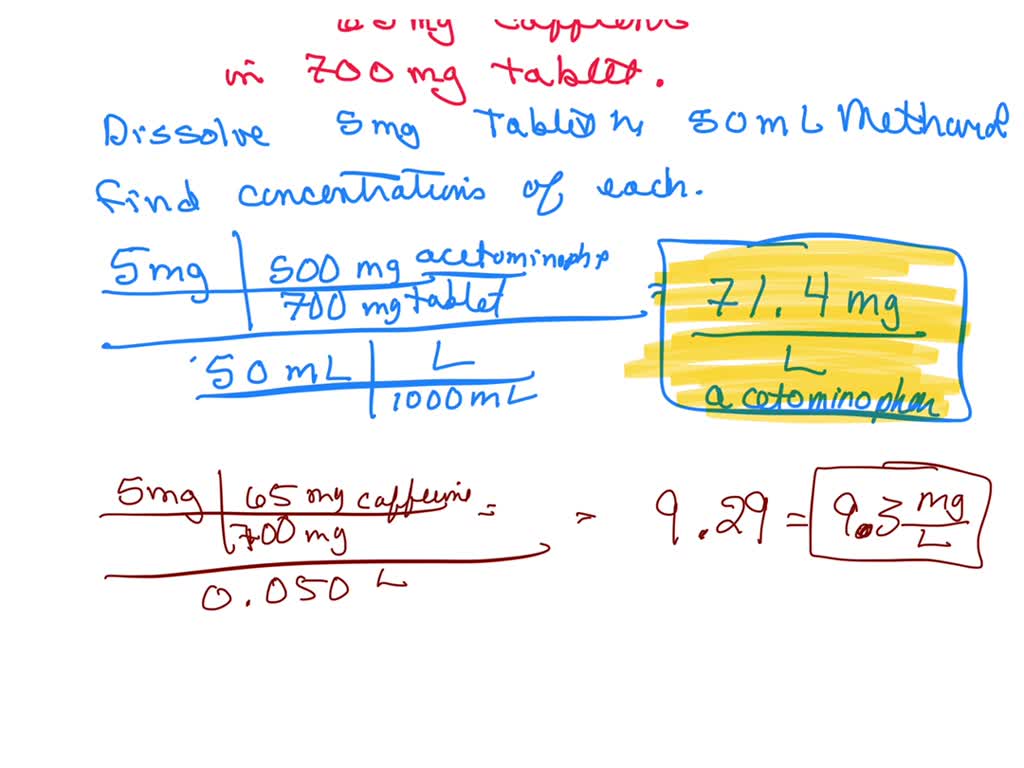 65 mg caffeine
in 700 mg tablet.
Dissolve 5mg Tablet in 50mL Methanol
Find concentrations of each.
5mg | 500 mg acetominophe
700 mg tablet
50 mL | L
1000 mL
= 71.4 mg
L
acetominophen
5mg | 65 mg caffeine =
700 mg
0.050 L
= 9.29 = 9.3 mg
L